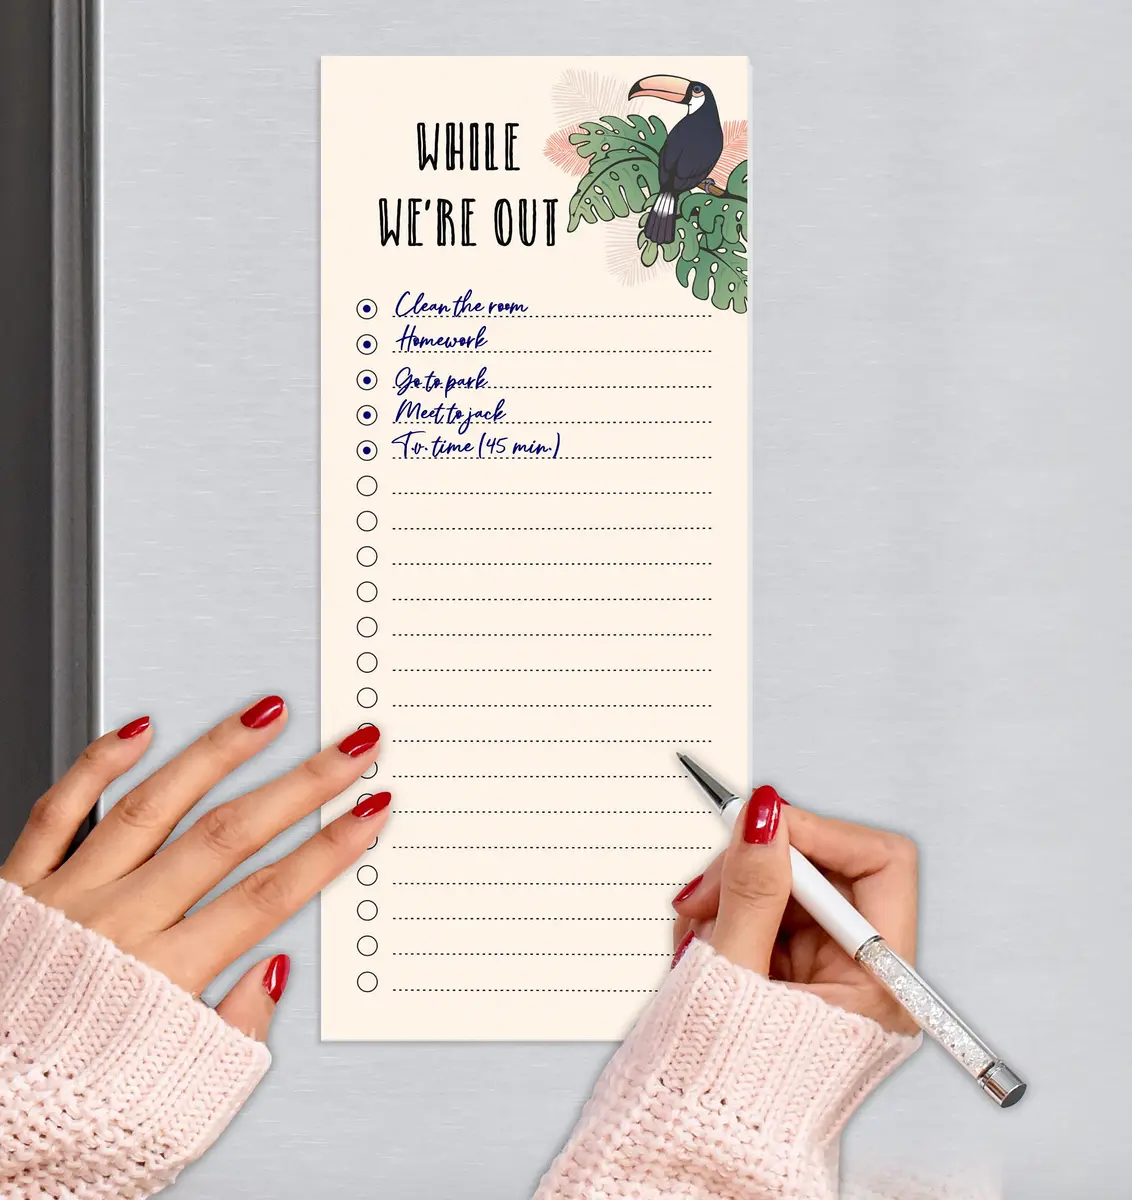 WHILE
WE'RE OUT
Clean the room
Homework
Go to park
Meet to jack
T.v. time (45 min.)